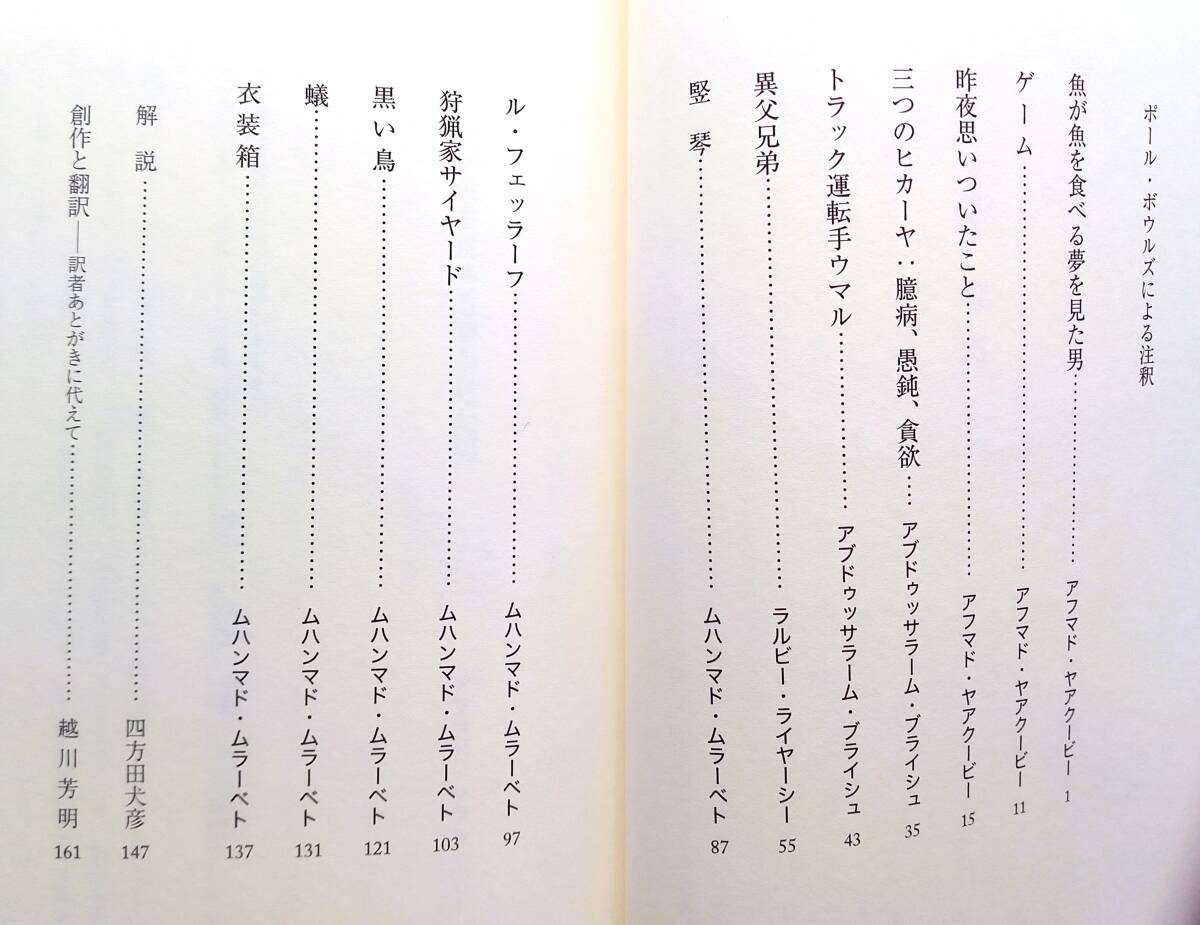 ポール・ボウルズによる注釈
魚が魚を食べる夢を見た男……………………アフマド・ヤアクービー 1
ゲーム……………………………………アフマド・ヤアクービー 11
昨夜思いついたこと……………………………アフマド・ヤアクービー 15
三つのヒカーヤ:臆病、愚鈍、貪欲……アブドゥッサラーム・ブライシュ 35
トラック運転手ウマル…………………アブドゥッサラーム・ブライシュ 43
異父兄弟……………………………………ラルビー・ライヤーシー 55
竪琴……………………………………ムハンマド・ムラーベト 87
ル・フェッラーフ……………………………ムハンマド・ムラーベト 97
狩猟家サイヤード……………………………ムハンマド・ムラーベト 103
黒い鳥……………………………………ムハンマド・ムラーベト 121
蟻………………………………………ムハンマド・ムラーベト 131
衣装箱……………………………………ムハンマド・ムラーベト 137
解説………………………………………四方田犬彦 147
創作と翻訳——訳者あとがきに代えて……………………越川芳明 161